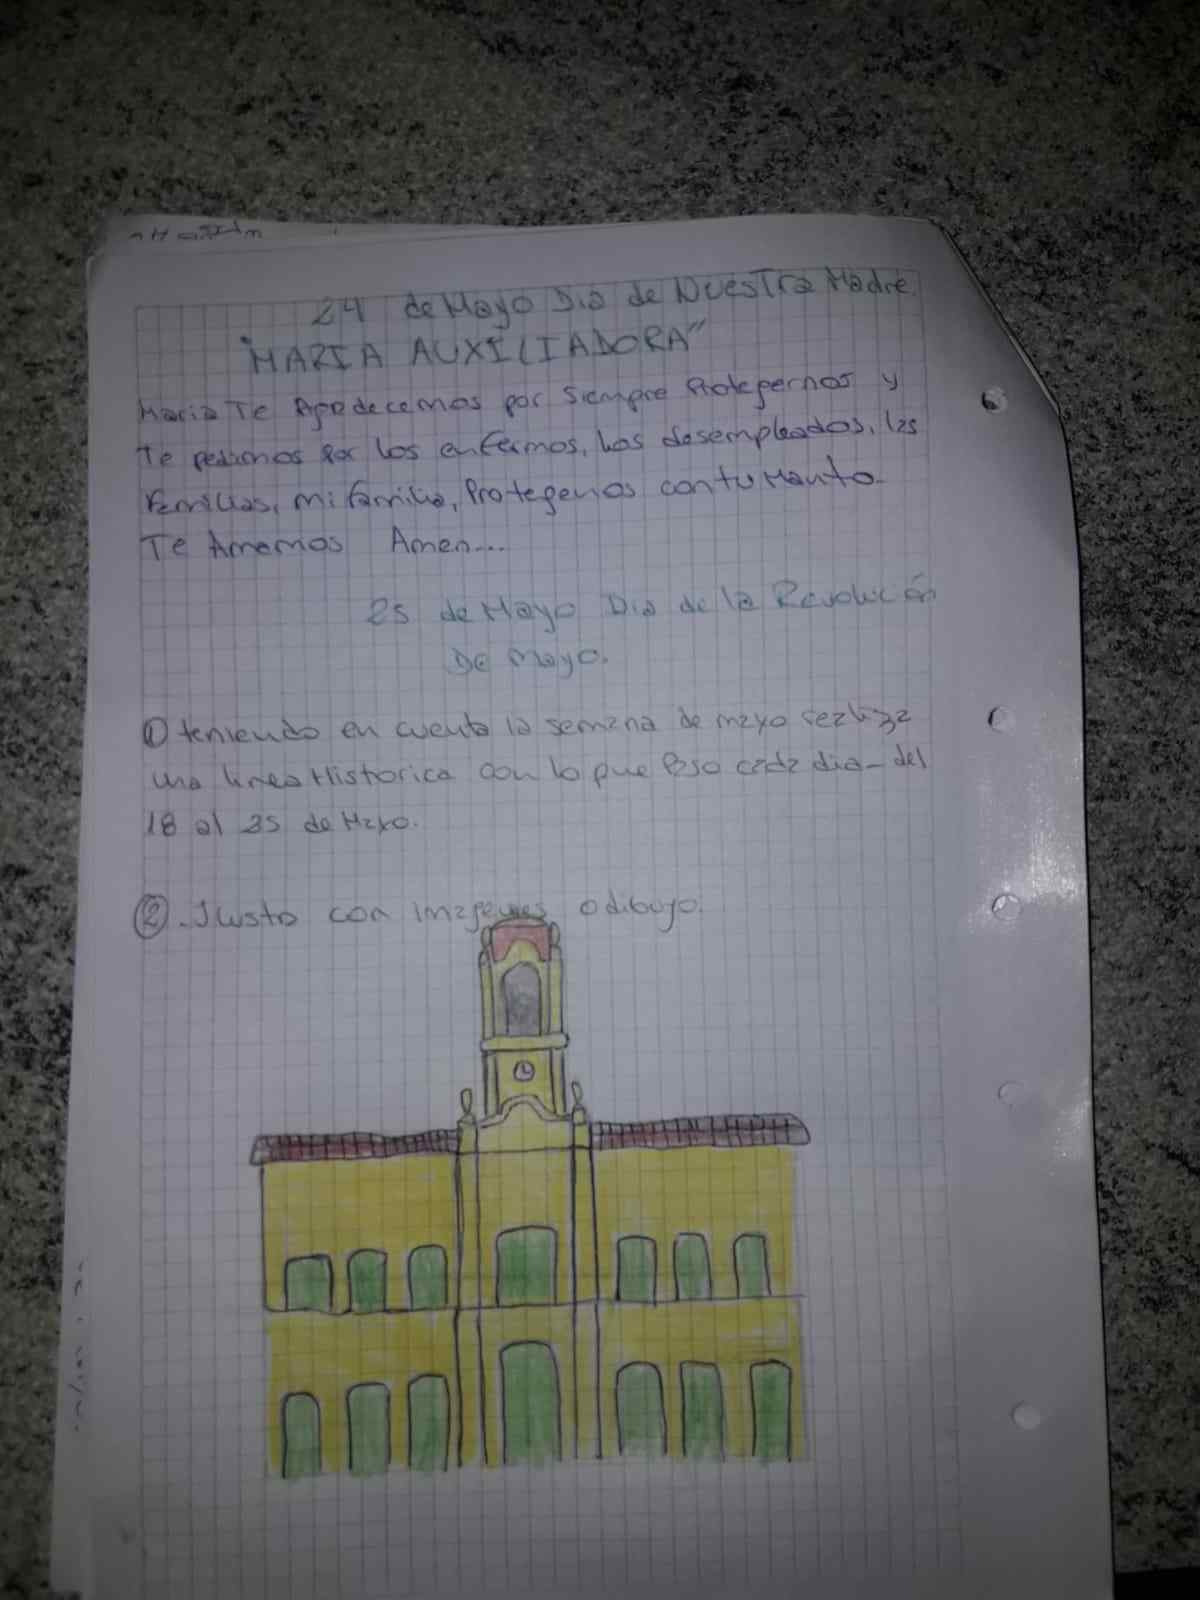 24 de Mayo Dia de Nuestra Madre.
"MARIA AUXILIADORA"
Maria Te Agradecemos por siempre Protegernos y
Te pedimos por los enfermos, Los desempleados, las
Familias, mi familia, Protegenos con tu Manto.
Te Amamos Amen...
25 de Mayo Dia de la Revolución
De Mayo.
① teniendo en cuenta la semana de mayo realiza
una linea Historica con lo que Paso cada dia - del
18 al 25 de Mayo.
②.- Ilustro con imagenes o dibujo.